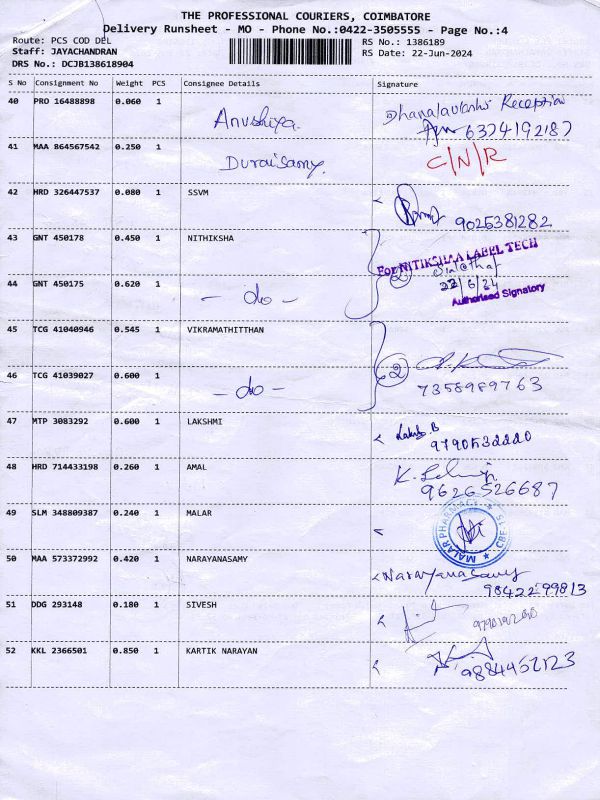 THE PROFESSIONAL COURIERS, COIMBATORE
Delivery Runsheet - MO - Phone No.:0422-3505555 - Page No.:4
Route: PCS COD DEL RS No.: 1386189
Staff: JAYACHANDRAN RS Date: 22-Jun-2024
DRS No.: DCJB138618904
S No Consignment No Weight PCS Consignee Details Signature
40 PRO 16488898 0.060 1 Anushiya. Reception
6374192187
41 MAA 864567542 0.250 1 Duraisamy. C/N/R
42 HRD 326447537 0.080 1 SSVM
9025381282
43 GNT 450178 0.450 1 NITHIKSHA For NITIKSHAA LABEL TECH
44 GNT 450175 0.620 1 - do - 2 22/6/24
Authorised Signatory
45 TCG 41040946 0.545 1 VIKRAMATHITTHAN
46 TCG 41039027 0.600 1 - do - 2 7358989763
47 MTP 3083292 0.600 1 LAKSHMI B
9790532220
48 HRD 714433198 0.260 1 AMAL K.
9626526687
49 SLM 348809387 0.240 1 MALAR MALAR PHARMACY
50 MAA 573372992 0.420 1 NARAYANASAMY Narayanasamy
9842299813
51 DDG 293148 0.180 1 SIVESH
52 KKL 2366501 0.850 1 KARTIK NARAYAN
9884452123